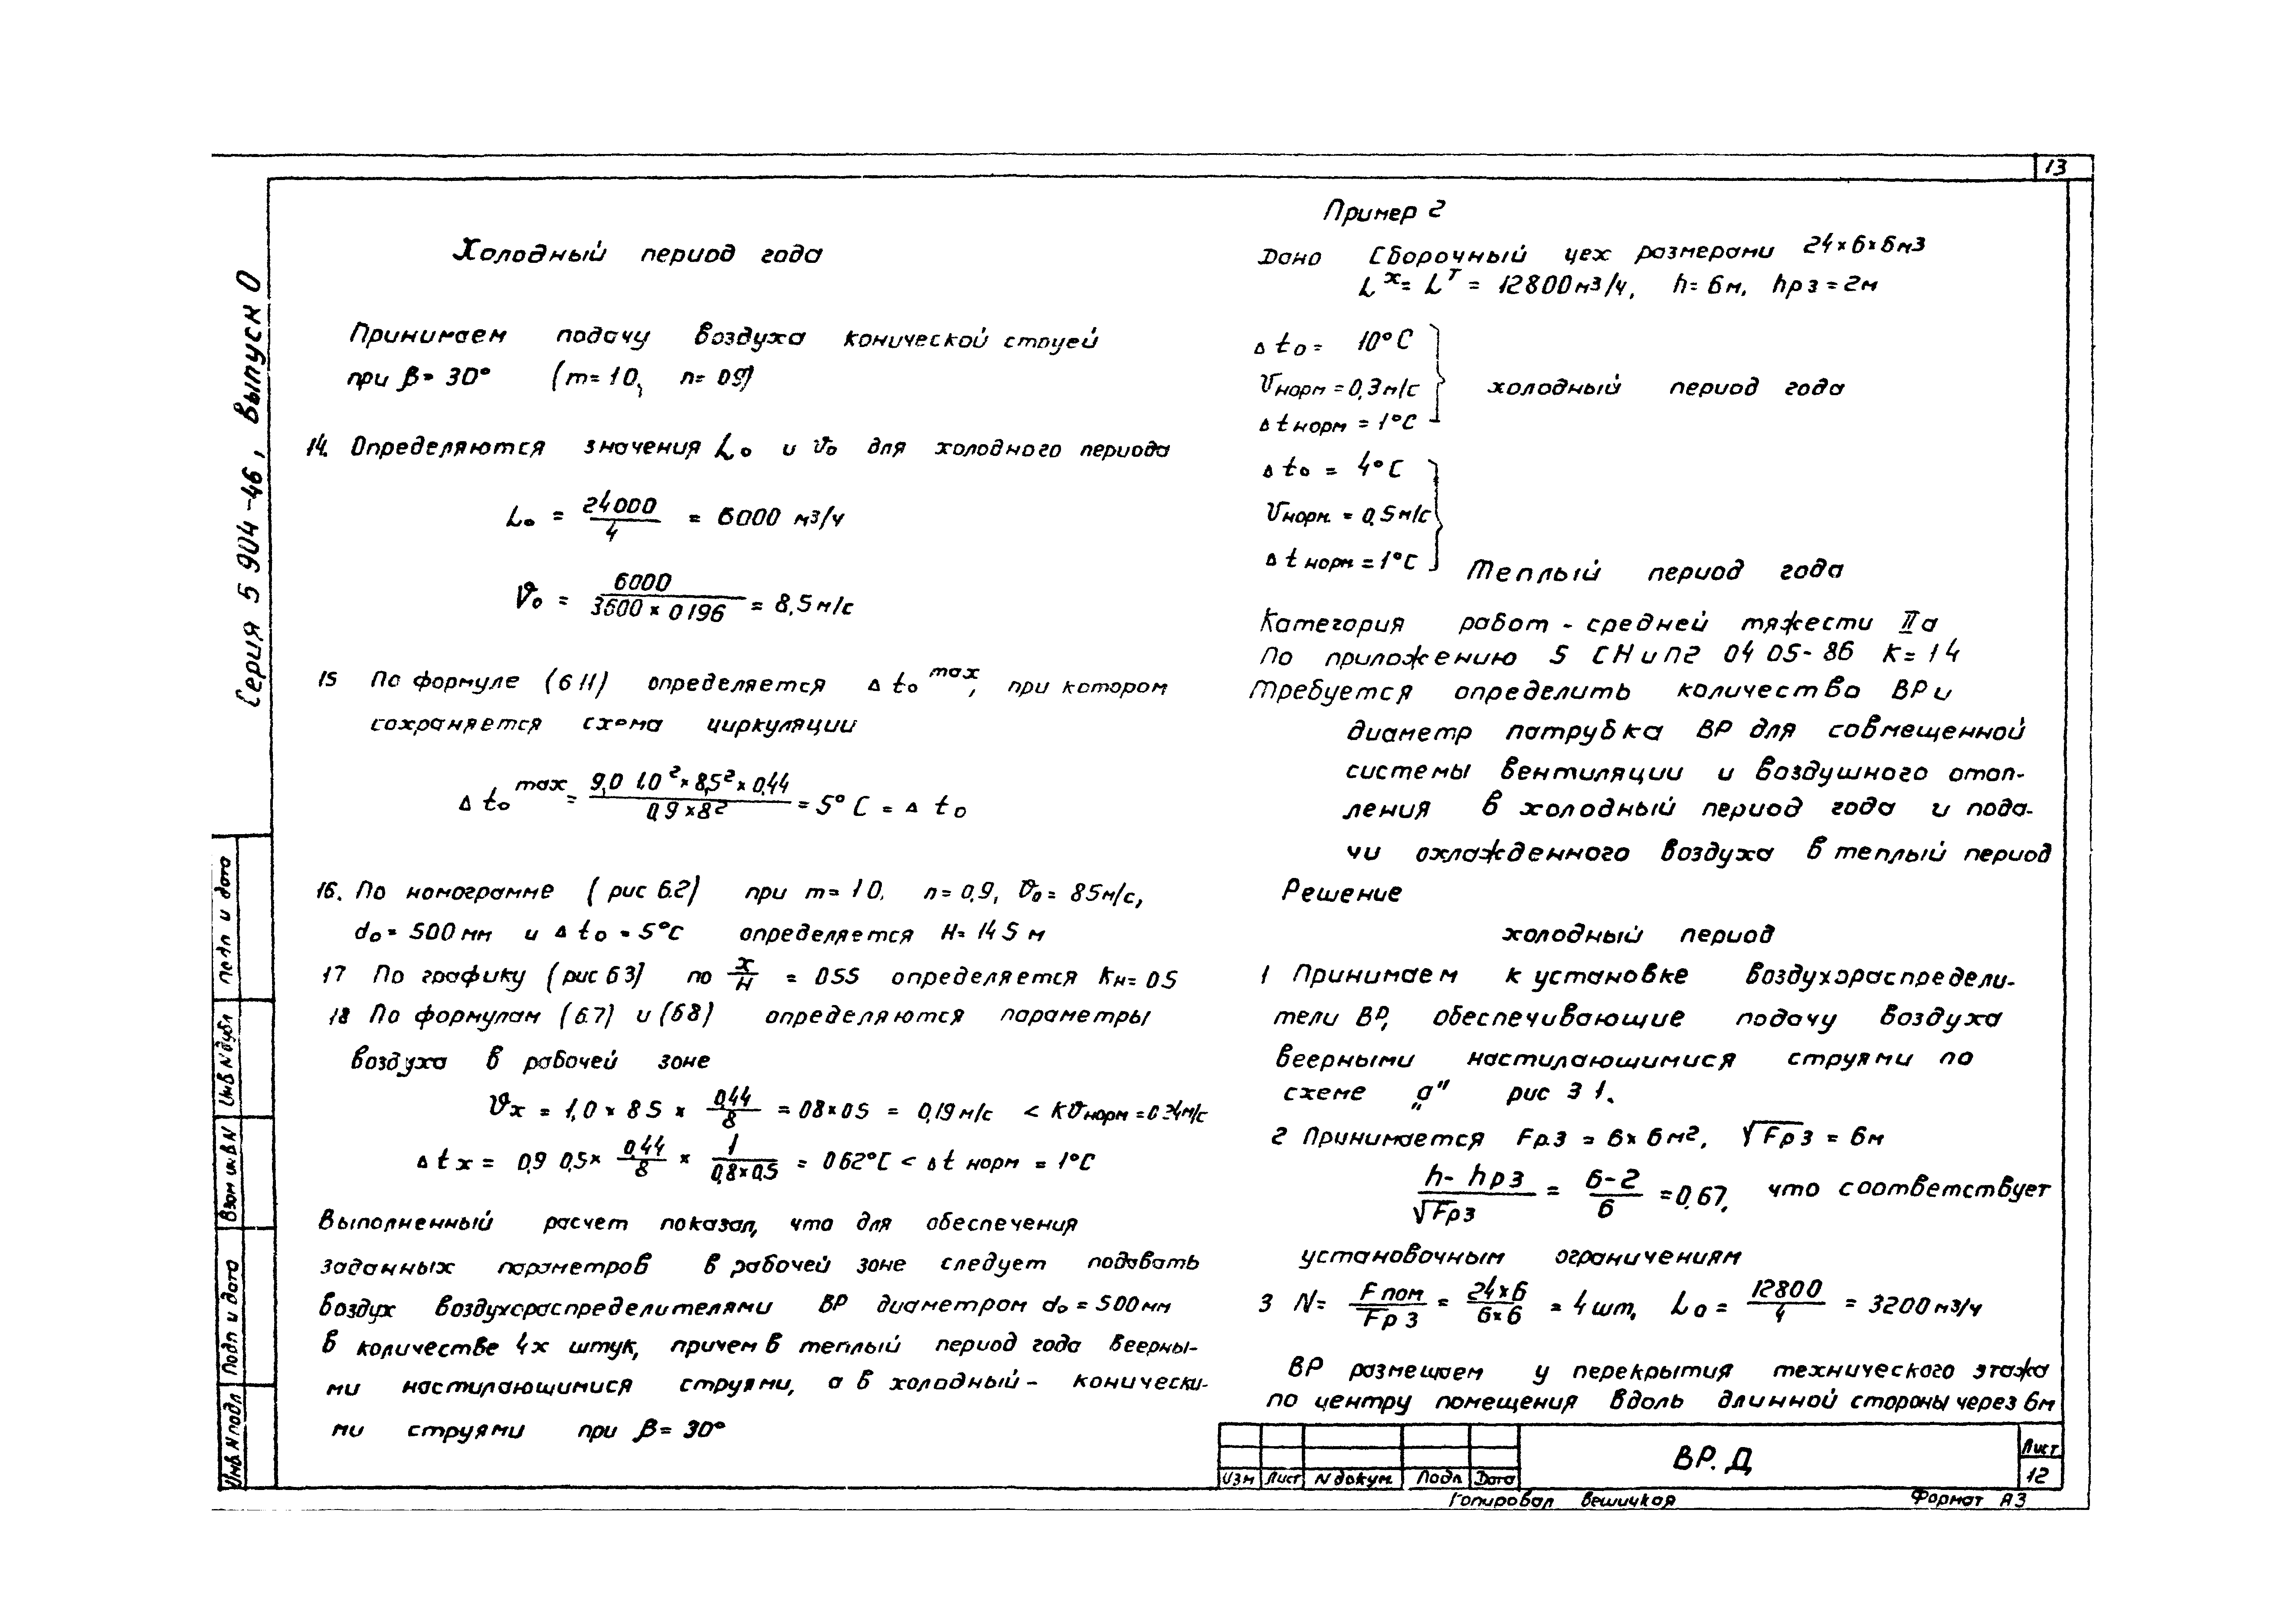 13
Серия 5 904-46, Выпуск 0
Холодный период года
Принимаем подачу воздуха конической струей
при β= 30° (m= 1 0, n= 0 9)
14. Определяются значения L₀ и ϑ₀ для холодного периода
L₀ = 24000/4 = 6000 м3/ч
ϑ₀ = 6000/(3600 × 0 196) = 8,5 м/с
15 По формуле (6 11) определяется Δ t₀ max, при котором
сохраняется схема циркуляции
Δ t₀ max = (9,0 1.0² × 8,5² × 0,44)/(0,9 × 8²) = 5° C = Δ t₀
16. По номограмме ( рис 6.2) при m= 1 0, n= 0,9, ϑ₀= 8 5 м/с,
d₀= 500 мм и Δ t₀ = 5°С определяется H= 14 5 м
17 По графику (рис 6 3) по x/H = 0 55 определяется Кн= 0 5
18 По формулам (6.7) и (6 8) определяются параметры
воздуха в рабочей зоне
ϑx = 1,0 × 8 5 × 0,44/8 = 0 8 × 0 5 = 0,19 м/с < Kϑнорм = 0 24 м/с
Δ t x = 0,9 0,5 × 0,44/8 × 1/(0,8 × 0,5) = 0 62°С < Δ t норм = 1°С
Выполненный расчет показал, что для обеспечения
заданных параметров в рабочей зоне следует подавать
воздух воздухораспределителями ВР диаметром d₀ = 500 мм
в количестве 4х штук, причем в теплый период года веерны-
ми настилающимися струями, а в холодный - конически-
ми струями при β= 30°
Пример 2
Дано Сборочный цех размерами 24 × 6 × 6 м3
L х = L Т = 12800 м3/ч, h= 6 м, hр з = 2 м
Δ t₀ = 10° С
ϑнорм = 0,3 м/с холодный период года
Δ t норм = 1°С
Δ t₀ = 4°С
ϑнорм. = 0,5 м/с
Δ t норм = 1°С Теплый период года
Категория работ - средней тяжести IIа
По приложению 5 СНиП2 04 05- 86 К= 1 4
Требуется определить количество ВР и
диаметр патрубка ВР для совмещенной
системы вентиляции и воздушного отоп-
ления в холодный период года и пода-
чи охлажденного воздуха в теплый период
Решение
холодный период
1 Принимаем к установке воздухораспредели-
тели ВР, обеспечивающие подачу воздуха
веерными настилающимися струями по
схеме „а" рис 3 1.
2 Принимается Fр.з = 6 × 6 м², √Fр з = 6 м
(h- hр з)/√Fр з = (6-2)/6 = 0,67, что соответствует
установочным ограничениям
3 N= F пом/Fр з = 24 × 6/6 × 6 = 4 шт, L₀ = 12800/4 = 3200 м3/ч
ВР размещаем у перекрытия технического этажа
по центру помещения вдоль длинной стороны через 6 м
Подп и дата
Инв N дубл
Взам инв N
Подп и дата
Инв N подл
Изм Лист N докум. Подп Дата
ВР. Д
Лист
12
Копировал Вешицкая Формат А3